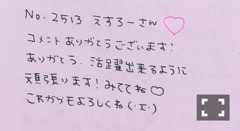 No. 2513 えすろーさん♡
コメントありがとうございます!
ありがとう、活躍出来るように
頑張ります!みててね♡
これからもよろしくね(·ᴗ·)